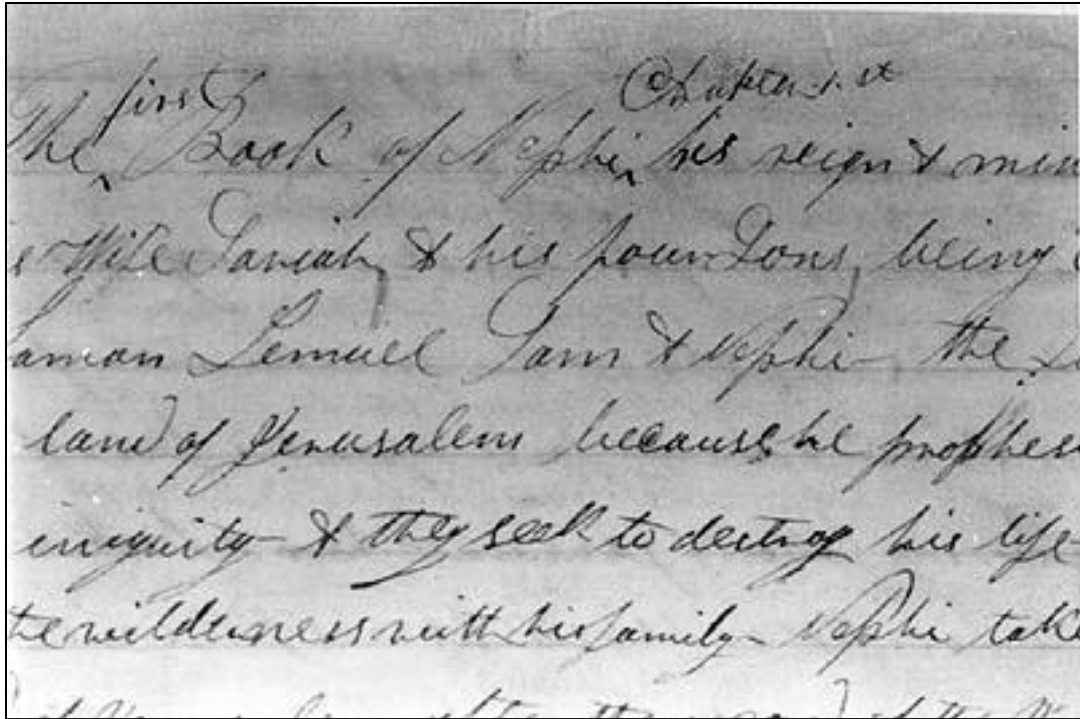 first Chapter 1.st
The Book of Nephi his reign & min
s Wife Sariah & his four Sons, being
aman Lemuel Sam & Nephi the
land of Jerusalem because he prophes
iniquity & they seek to destroy his life
the wilderness with his family Nephi take